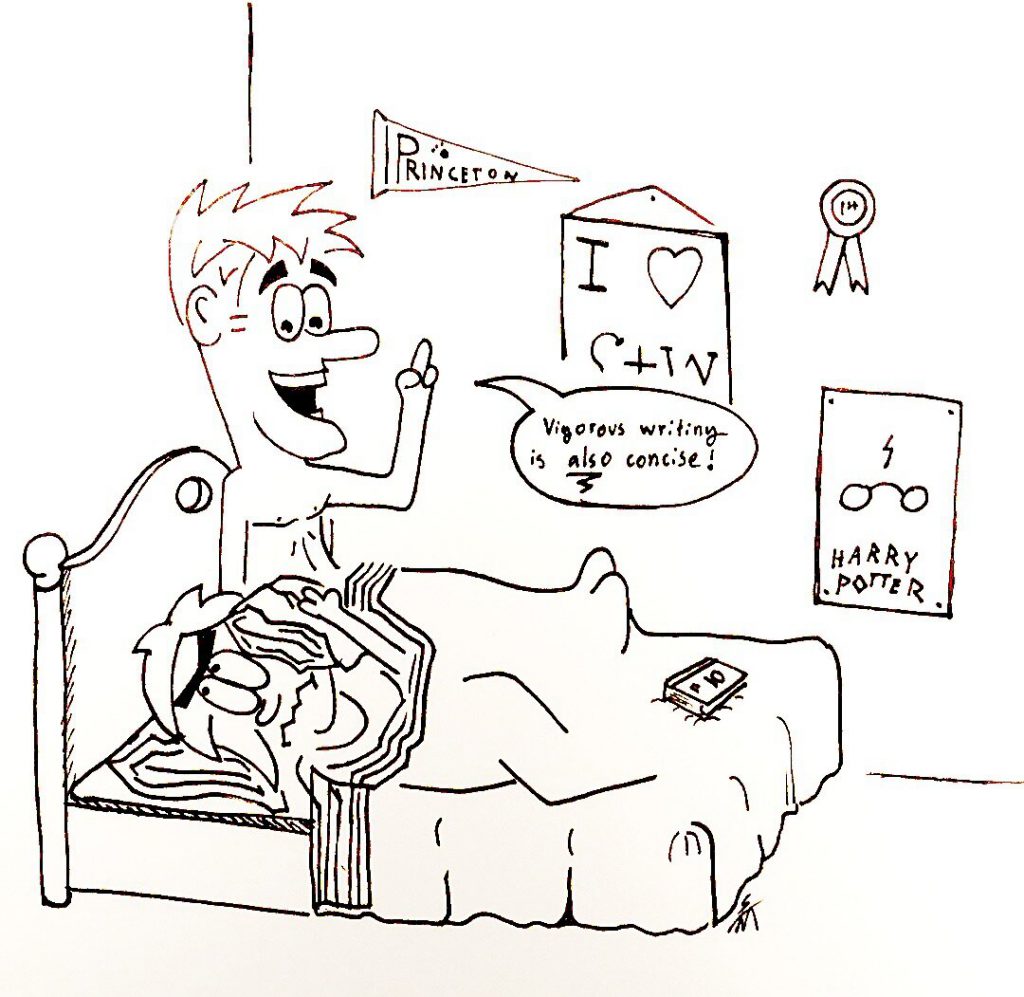 PRINCETON
I ♡
Vigorous writing
is also concise!
HARRY
POTTER